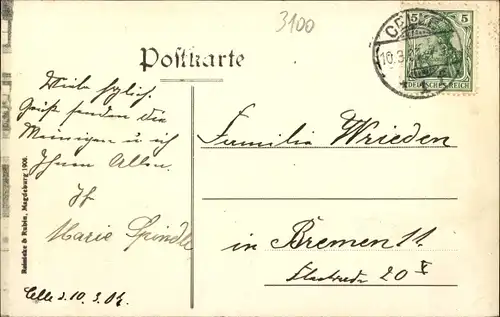 3100
Postkarte
CELLE
10.3.
5 5
DEUTSCHES REICH
Viele
Grüße senden die
Meinigen u. ich
Ihnen Allen.
Marie Spindler
Celle d. 10.3.
Familie Wrieden
in Bremen 11.
20
Reinicke & Rubin, Magdeburg 1906.